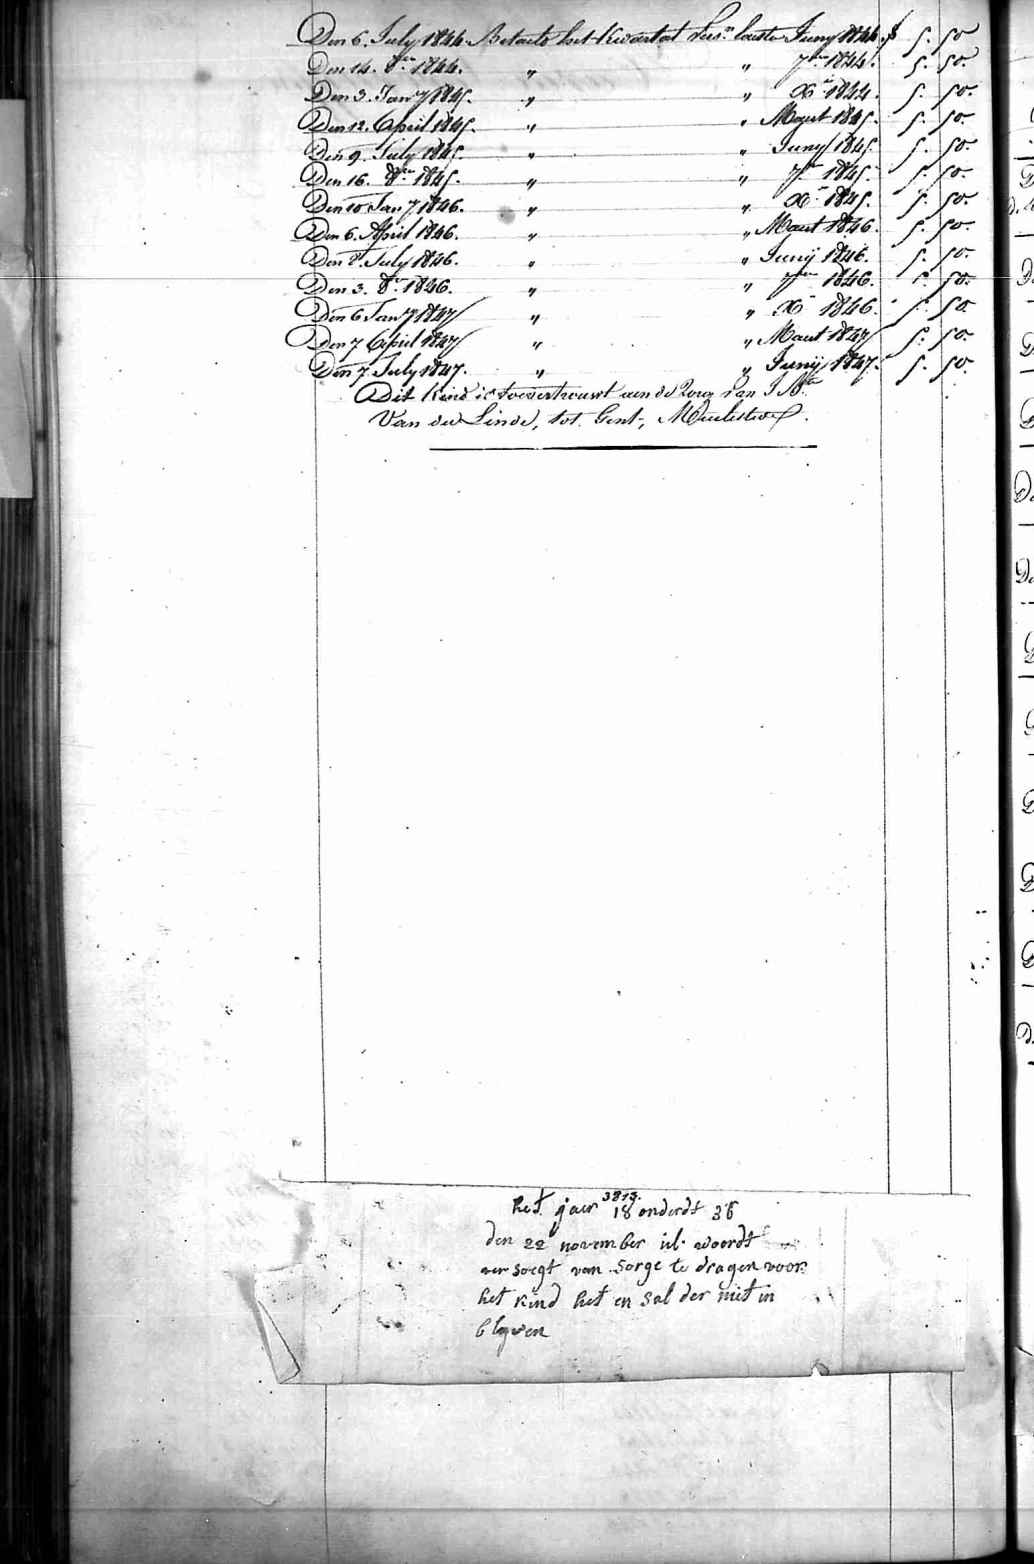 Den 6. July 1844. Betaelt het kwartael laeste Juny 1844. f 5. 50
Den 14. 8er 1844. " " 7er 1844. 5. 50
Den 3. Jany 1845. " " Xr 1844. 5. 50.
Den 12. April 1845. " " Maart 1845. 5. 50
Den 9. July 1845. " " Juny 1845. 5. 50
Den 16. 8er 1845. " " 7er 1845. 5. 50.
Den 10 Jany 1846. " " Xr 1845. 5. 50.
Den 6. April 1846. " " Maart 1846. 5. 50.
Den July 1846. " " Junij 1846. 5. 50
Den 3. 8er 1846. " " 7er 1846. 5. 50.
Den 6 Jany 1847 " " Xr 1846. 5. 50
Den 7 April 1847 " " Maart 1847 5. 50.
Den 7. July 1847. " " Junij 1847. 5. 50.
Dit kind is toevertrouwt aen de zorg van
Van der Linde, tot Gent, Meulestede.
3813.
het jaer 18 onderdt 36
den 22 november ul. woordt
versoegt van sorge te dragen voor
het kind het en sal der niet in
blyven